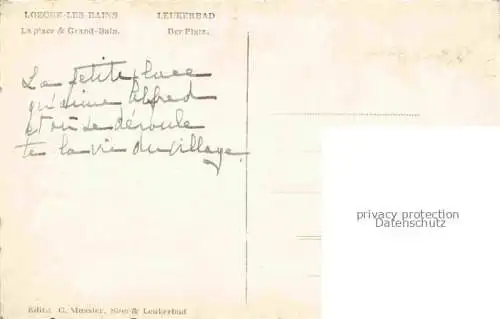 LOECHE-LES BAINS LEUKERBAD
La place & Grand-Bain. Der Platz.
La petite place
qu'aime Alfred
et où se déroule
te la vie du village.
privacy protection
Datenschutz
Edit. G. Mussler, Sion & Leukerbad